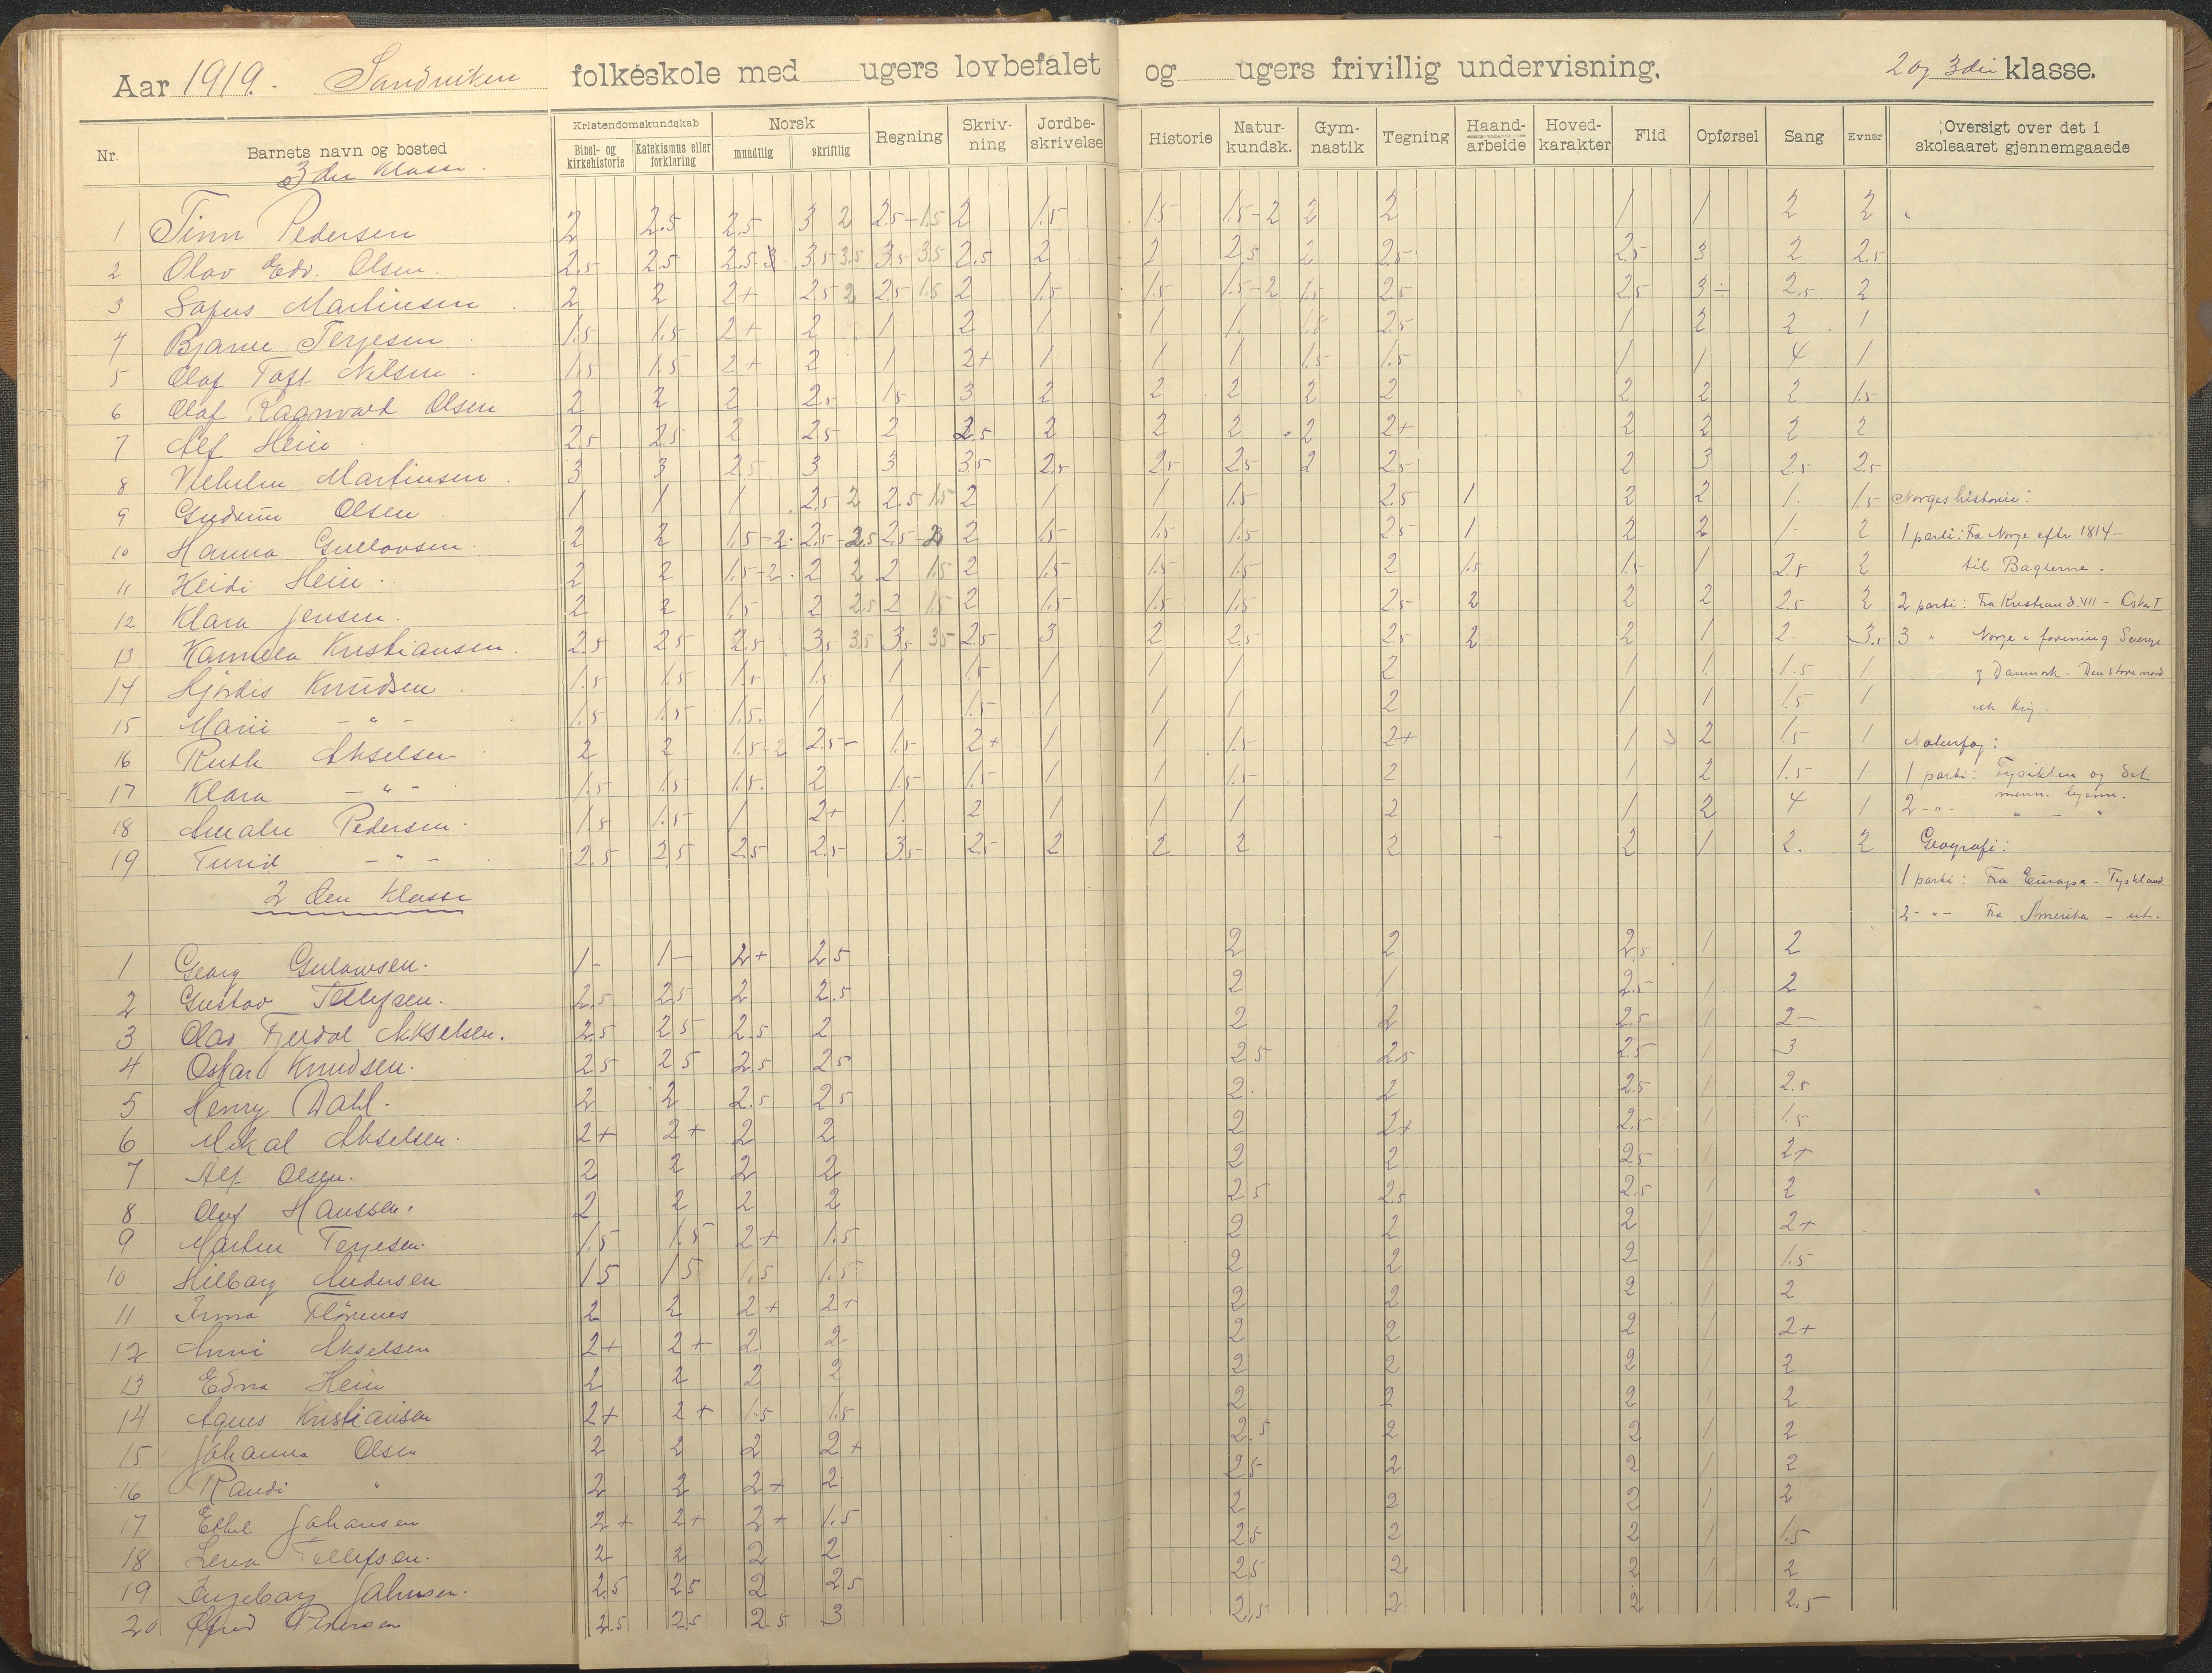 Aar 1919. Sandviken folkeskole med ugers lovbefalet og ugers frivillig undervisning. 2 og 3die klasse.
Nr. Barnets navn og bosted Kristendomskundskab Bibel- og kirkehistorie Katekismus eller forklaring Norsk mundtlig skriftlig Regning Skriv-ning Jordbe-skrivelse Historie Natur-kundsk. Gym-nastik Tegning Haand-arbeide Hoved-karakter Flid Opførsel Sang Evner Oversigt over det i skoleaaret gjennemgaaede
3die Klasse.
1 Finn Pedersen 2 2.5 2.5 3 2 2.5-1.5 2 1.5 1.5 1.5-2 2 2 1 1 2 2
2 Olav Edv. Olsen. 2.5 2.5 2.5-3 3.5 3.5 3.5 3.5 2.5 2 2 2.5 2 2.5 2.5 3 2 2.5
3 Sofus Martinsen 2 2 2+ 2.5 2 2.5 1.5 2 1.5 1.5 1.5-2 1.5 2.5 2.5 3÷ 2.5 2
4 Bjarne Terjesen 1.5 1.5 2+ 2 1 2 1 1 1 1.5 2.5 1 2 2 1
5 Olaf Toft Nilsen 1.5 1.5 2+ 2 1 2+ 1 1 1 1.5 1.5 1 1 4 1
6 Olaf Ragnvald Olsen 2 2 2 2.5 1.5 3 2 2 2 2 2 2 2 2 1.5
7 Alf Hein 2.5 2.5 2 2.5 2 2.5 2 2 2 2 2+ 2 2 2 2
8 Vilhelm Martinsen 3 3 2.5 3 3 3.5 2.5 2.5 2.5 2 2.5 2 3 2.5 2.5
9 Gudrun Olsen 1 1 1 2.5 2 2.5 1.5 2 1 1 1.5 2.5 1 2 2 1. 1.5 Norgeshistorie:
10 Hanna Gullovsen 2 2 1.5-2. 2.5-2.5 2.5-3 2 1.5 1.5 1.5 2.5 1 2 2 1. 2 1 parti: Fra Norge efter 1814 -
11 Heidi Hein. 2 2 1.5-2. 2 2 2 1.5 2 1.5 1.5 1.5 2 1.5 1.5 1 2.5 2 til Baglerne.
12 Klara Jensen. 2 2 1.5 2 2.5 2 1.5 2 1.5 1.5 1.5 2.5 2 2 2 2.5 2 2 parti: Fra Kristian d. VII - Oskar I
13 Kamilla Kristiansen. 2.5 2.5 2.5 3.5 3.5 3.5 3.5 2.5 3 2 2.5 2.5 2 2 1 2. 3.5 3 " Norge i forening Sverige
14 Hjørdis Knudsen 1.5 1.5 1.5 1.5 1 1.5 1 1 1 2 1 1 1.5 1 og Danmark - Den store nord
15 Marie - " - 1.5 1.5 1.5. 1 1 1.5 1 1 1 2 1 1 1.5 1
16 Ruth Akselsen 2 2 1.5-2 2.5- 1.5 2+ 1 1 1.5 2+ 1 2 1.5 1 Naturfag:
17 Klara - " - 1.5 1.5 1.5. 2 1.5 1.5 1 1 1.5 2 1 2 1.5 1 1 parti: Fysikken og det menn. legeme.
18 Amalie Pedersen. 1.5 1.5 1 2+ 1. 2 1 1 1 2 1 2 4 1 2 - " - " - "
19 Turid - " - 2.5 2.5 2.5 2.5 3.5 2.5 2 2 2 2 2 1 2. 2 Geografi:
2den Klasse 1 parti: Fra Europa - Tyskland
2 - " - Fra Amerika - ut.
1 Georg Gulowsen. 1- 1- 2+ 2.5 2 2 2.5 1 2
2 Gustav Tellefsen. 2.5 2.5 2 2.5 2 1 2.5 1 2
3 Olav Fjerdal Akselsen. 2.5 2.5 2.5 2 2 2 2.5 1 2-
4 Oskar Knudsen. 2.5 2.5 2.5 2.5 2.5 2.5 2.5 1 3
5 Henry Dahl. 2 2 2.5 2.5 2. 2 2.5 1 2.5
6 Mikal Akselsen. 2+ 2+ 2 2 2 2+ 2.5 1 1.5
7 Alf Olsen. 2 2 2 2 2 2 2.5 1 2+
8 Oluf Hanssen. 2 2 2 2 2.5 2.5 2.5 1 2
9 Martin Terjesen. 1.5 1.5 2+ 1.5 2 2 2 1 2+
10 Hilborg Andersen 1.5 1.5 1.5 1.5 2 2 2 1 1.5
11 Irma Flörenes 2 2 2+ 2+ 2 2 2 1 2
12 Anni Akselsen 2+ 2+ 2 2 2 2 2 1 2+
13 Edna Hein 2 2 2 2 2 2 2 1 2
14 Agnes Kristiansen 2+ 2+ 1.5 1.5 2 2 2 1 2
15 Johanna Olsen 2 2 2 2+ 2.5 2 2 1 2
16 Randi " 2 2 2+ 2 2.5 2 2 1 2
17 Ethel Johansen 2+ 2+ 2+ 1.5 2 2 2 1 2
18 Lena Tellefsen. 2 2 2 2 2.5 2 2 1 1.5
19 Ingeborg Johnsen. 2.5 2.5 2 2.5 2.5 2 2 1 2
20 Pedersen 2.5 2.5 2.5 3 2.5 2 2 1 2.5